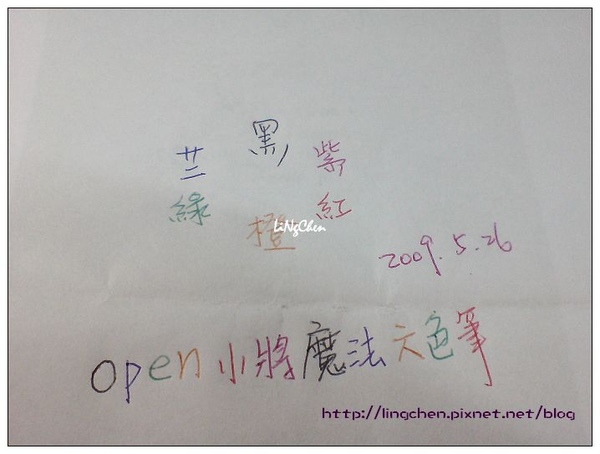 黑
芏 紫
綠 紅
橙
LiNgChen
2009.5.26
open小將魔法六色筆
http://lingchen.pixnet.net/blog